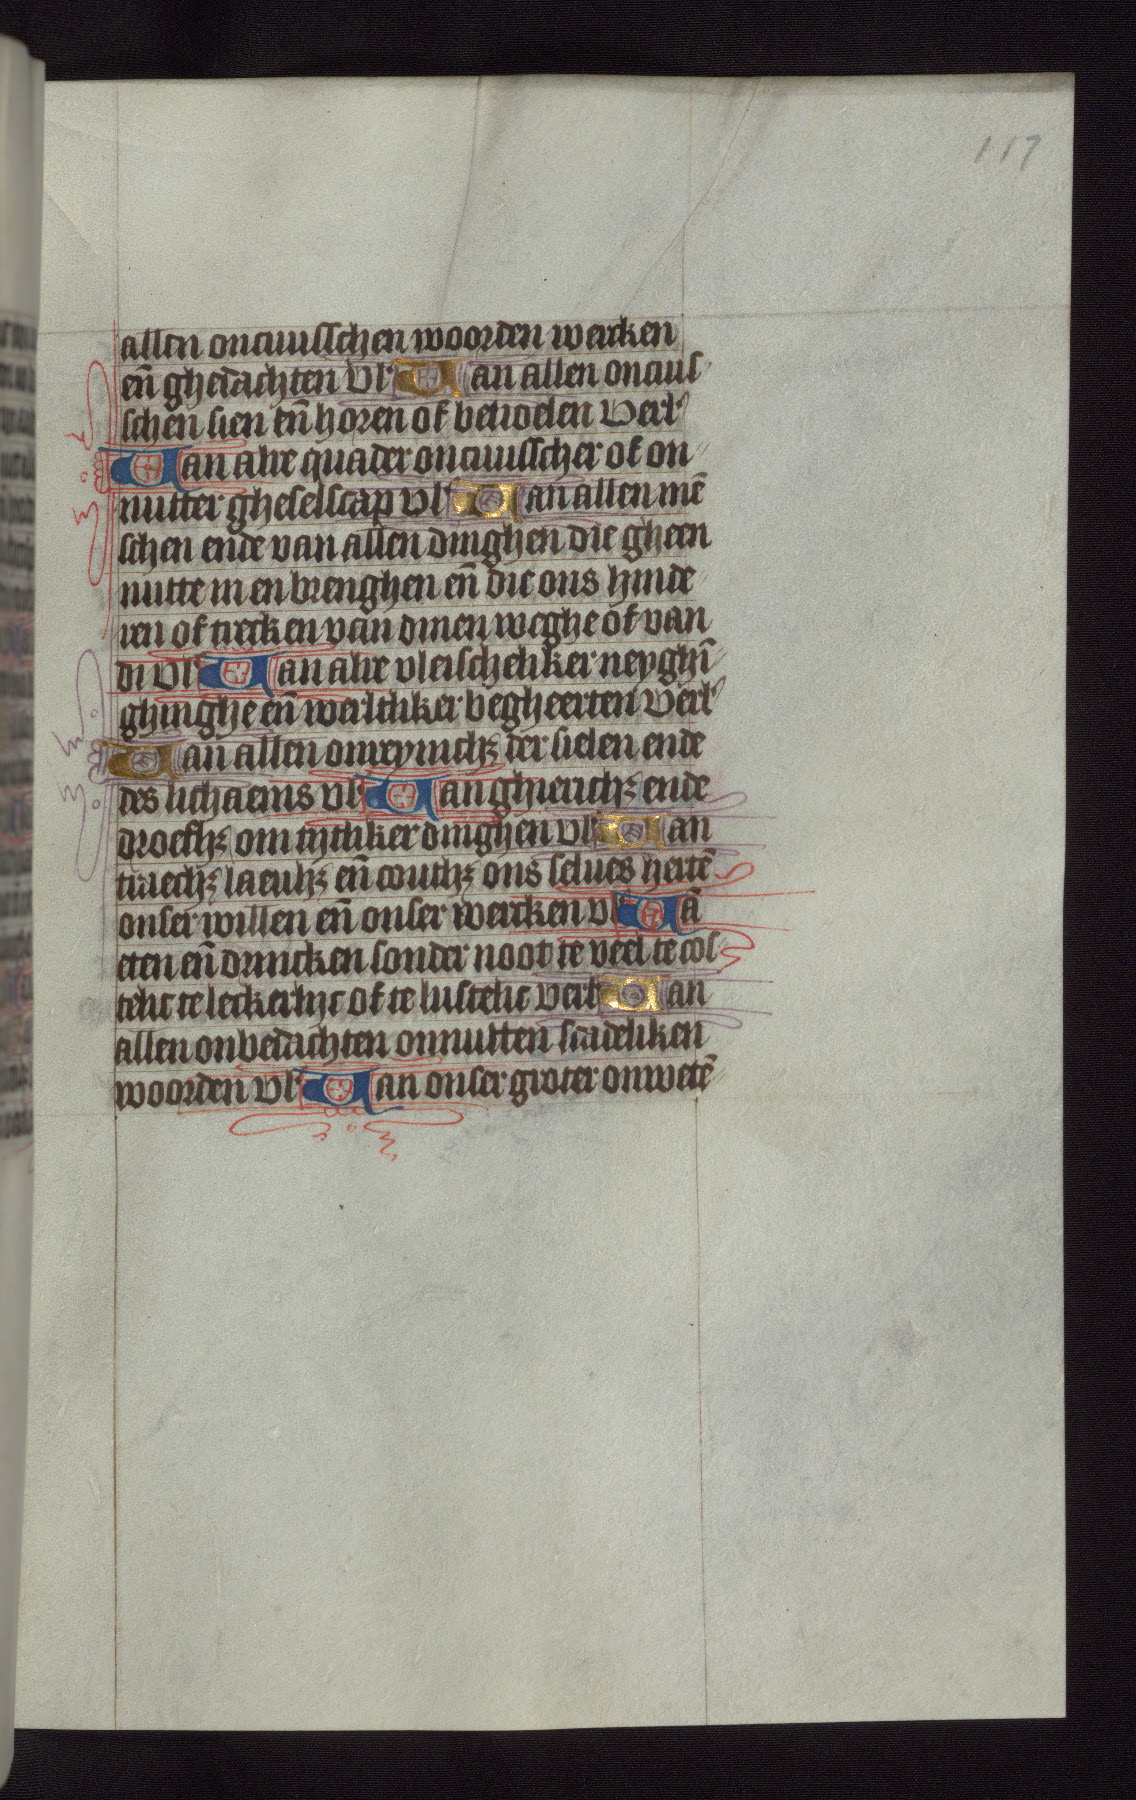 117
allen oncuusschen woorden wercken
eñ ghedachten Vl' Van allen oncuus〃
schen sien eñ horen of bevoelen Verl'
Van alre quader oncuusscher of on〃
nutter gheselscap Vl' Van allen mē
schen ende van allen dinghen die gheen
nutte in en brenghen eñ die ons hinde〃
ren of trecken van dinen weghe of van
di Vl' Van alre vleischeliker neyghī
ghinghe eñ werltliker begheerten Verl'
Van allen onreynichꝫ der sielen ende
des lichaems Vl' Van ghierichꝫ ende
droefhꝫ om tijtliker dinghen Vl' Van
traechꝫ laeuhꝫ eñ couthꝫ ons selues hertē
onser willen eñ onser wercken Vl' Vā
eten eñ drincken sonder noot te veel te cos〃
telic te leckerlijc of te lustelic Verl' Van
allen onbedachten onnutten scadeliken
woorden Vl' Van onser groter onwetē〃